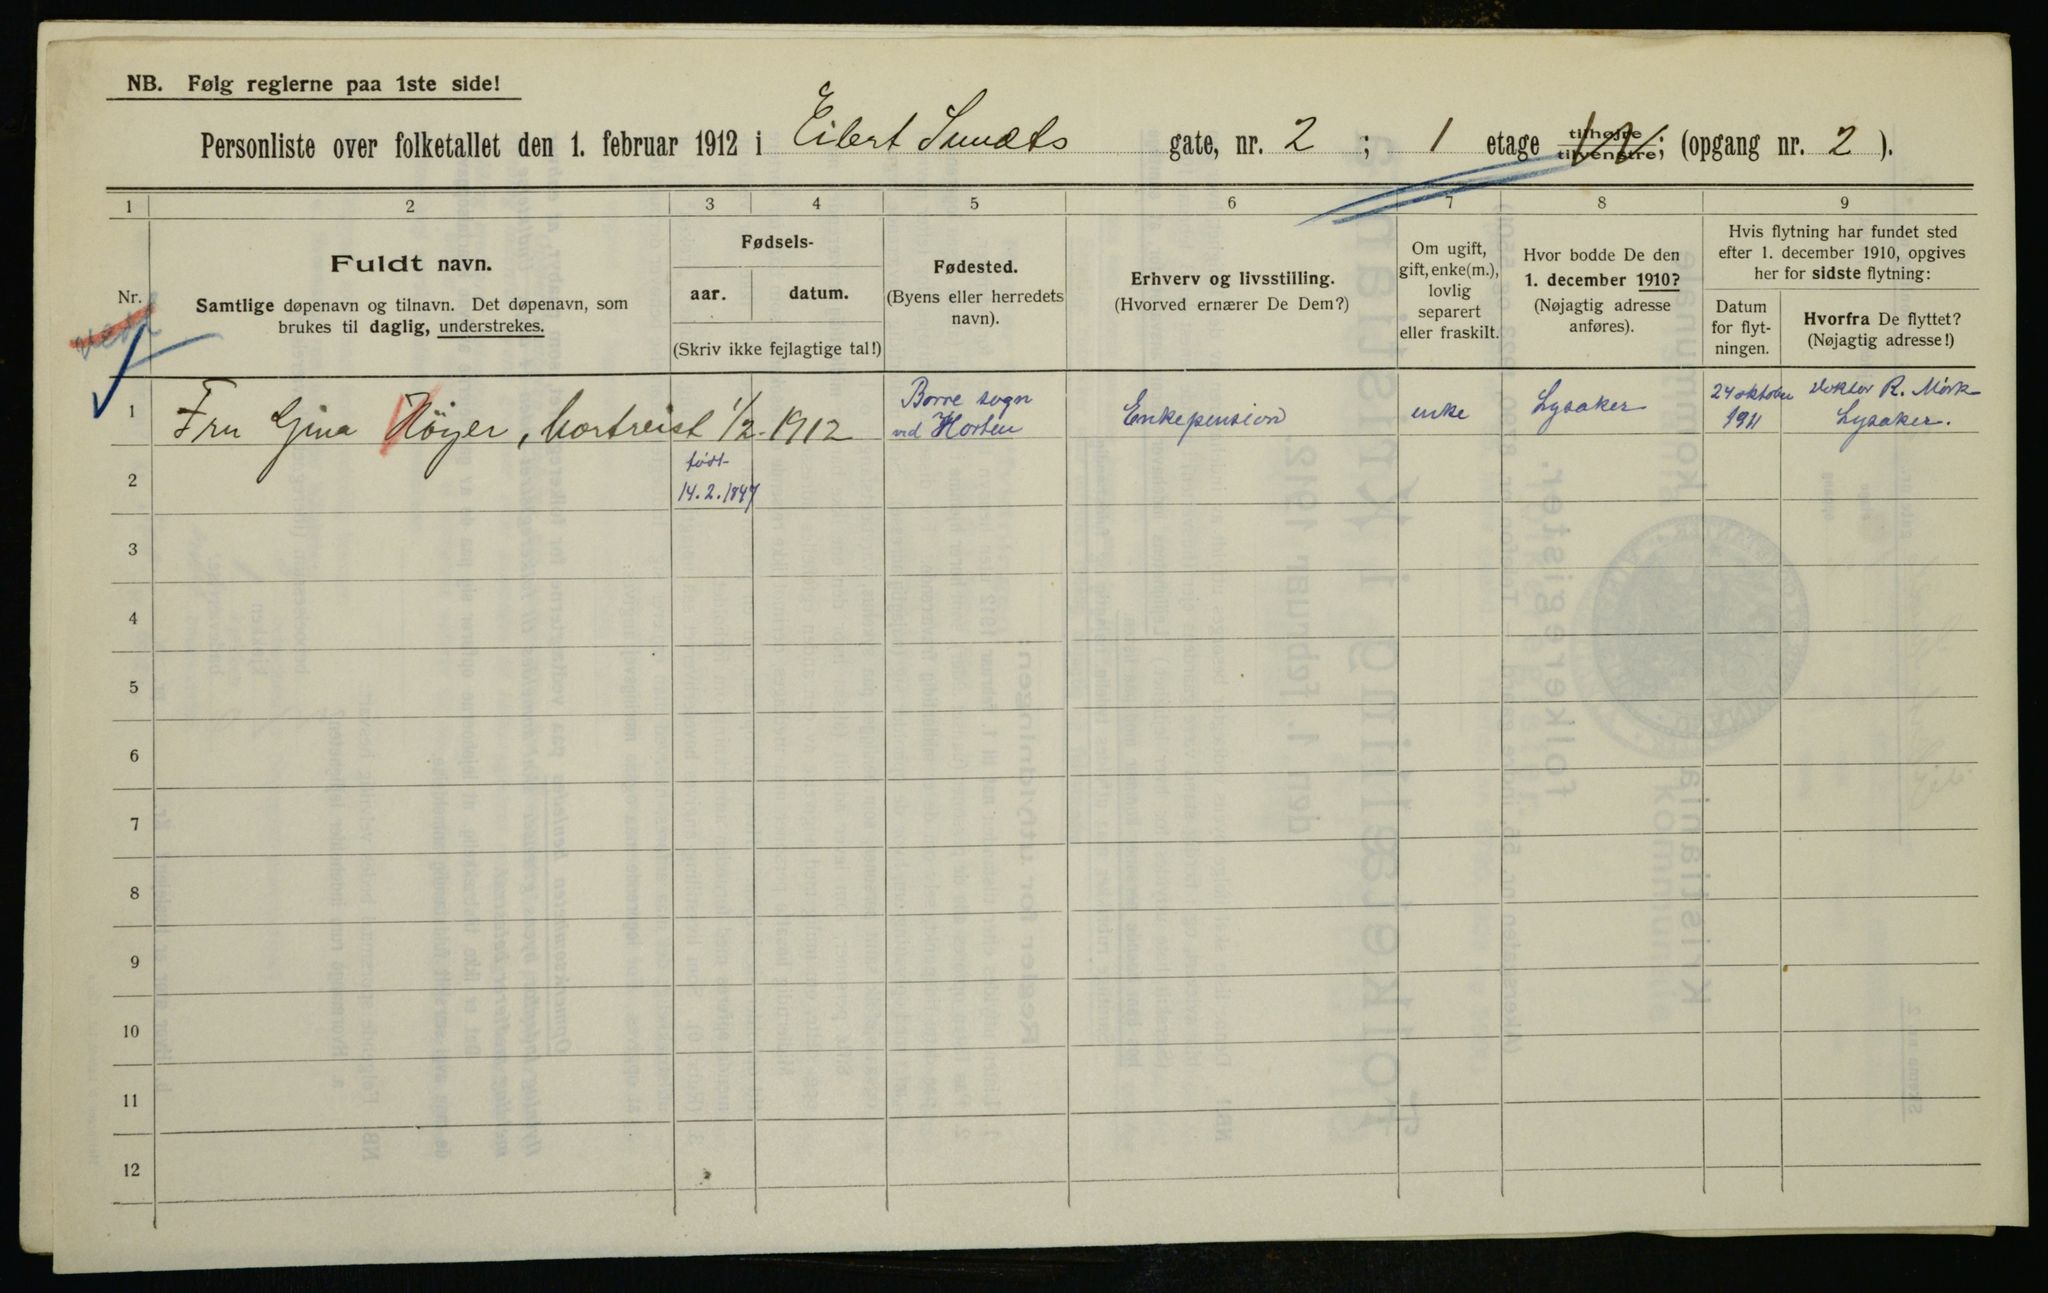 NB. Følg reglerne paa 1ste side!
Personliste over folketallet den 1. februar 1912 i Eilert Sundts gate, nr. 2 ; 1 etage tilhøjre tilvenstre; (opgang nr. 2 ).
1 2 3 4 5 6 7 8 9
Nr.
Fuldt navn.
Samtlige døpenavn og tilnavn. Det døpenavn, som
brukes til daglig, understrekes.
Fødsels-
aar. datum.
(Skriv ikke fejlagtige tal!)
Fødested.
(Byens eller herredets
navn).
Erhverv og livsstilling.
(Hvorved ernærer De Dem?)
Om ugift,
gift, enke(m.),
lovlig
separert
eller fraskilt.
Hvor bodde De den
1. december 1910?
(Nøjagtig adresse
anføres).
Hvis flytning har fundet sted
efter 1. december 1910, opgives
her for sidste flytning:
Datum
for flyt-
ningen.
Hvorfra De flyttet?
(Nøjagtig adresse!)
1 Fru Gina Höyer, bortreist 1/2 1912
født
14.2.1847
Borre sogn
ved Horten
Enkepension
enke
Lysaker
24 oktober
1911
Doktor R. Mörk
Lysaker.
2
3
4
5
6
7
8
9
10
11
12